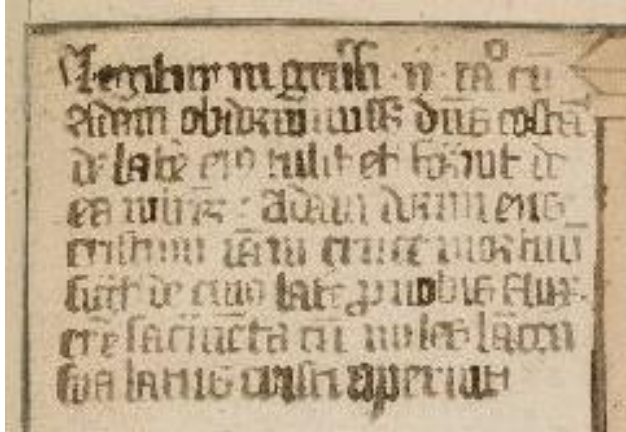 Legitur in gen̄si ii caº cū
Adam obdormiuiss; dn̄s costā
de lat̄e eiꝰ tulit et fōauit de
ea mulie᷑ : Adam dormiens
cristum iā in cruce mortuū
sigͭt de cuiꝰ lat̄e ꝓ nobis flux
er̄t sac̄meta cū miles lācea
sua latus cristi aperiuit